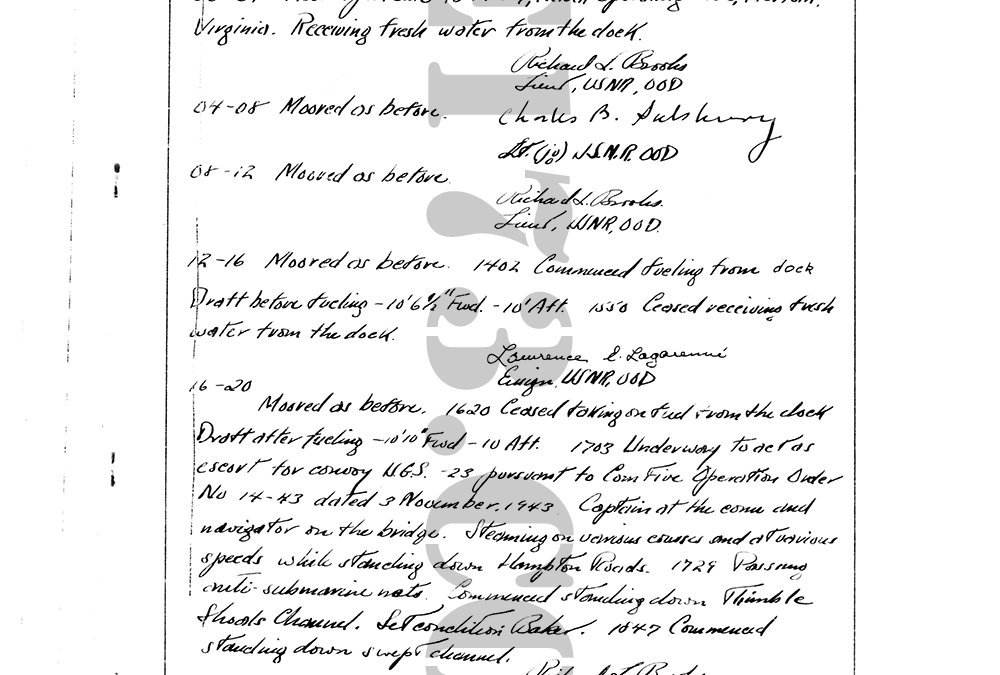 Virginia. Receiving fresh water from the dock.
Richard L. Brooks
Lieut, USNR, OOD
04-08 Moored as before.
Charles B. Sulsbury
Lt. (jg) U.S.N.R. OOD
08-12 Moored as before.
Richard L. Brooks.
Lieut, USNR, OOD.
12-16 Moored as before. 1402 Commenced fueling from dock
Draft before fueling -10'6½" Fwd. -10' Aft. 1550 Ceased receiving fresh
water from the dock.
Lawrence E.
Ensign, USNR, OOD
16-20
Moored as before. 1620 Ceased taking on fuel from the dock
Draft after fueling -10'10" Fwd -10 Aft. 1703 Underway to act as
escort for convoy U.G.S. -23 pursuant to Com Five Operation Order
No 14-43 dated 3 November, 1943. Captain at the conn and
navigator on the bridge. Steaming on various courses and at various
speeds while standing down Hampton Roads. 1729 Passing
anti-submarine nets. Commenced standing down Thimble
Shoals Channel. Set condition Baker. 1847 Commenced
standing down swept channel.